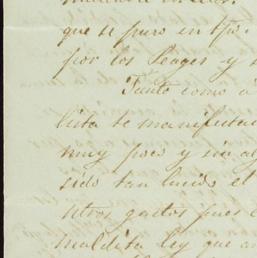 que se puso en
por los Peages y
Tanto como a
lista te manifesta
muy poco y sin al
sido tan lucido el
otros gastos pues
maldita ley que a